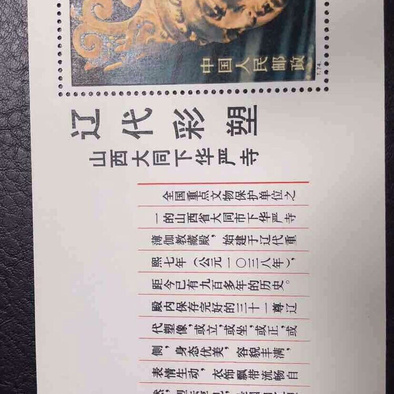 中国人民邮政
辽代彩塑
山西大同下华严寺
全国重点文物保护单位之
一的山西省大同市下华严寺
薄伽教藏殿，始建于辽代重
熙七年（公元一〇三八年），
距今已有九百多年的历史。
殿内保存完好的三十一尊辽
代塑像，或立，或坐，或正，或
侧，身态优美，容貌丰满，
表情生动，衣饰飘带流畅自